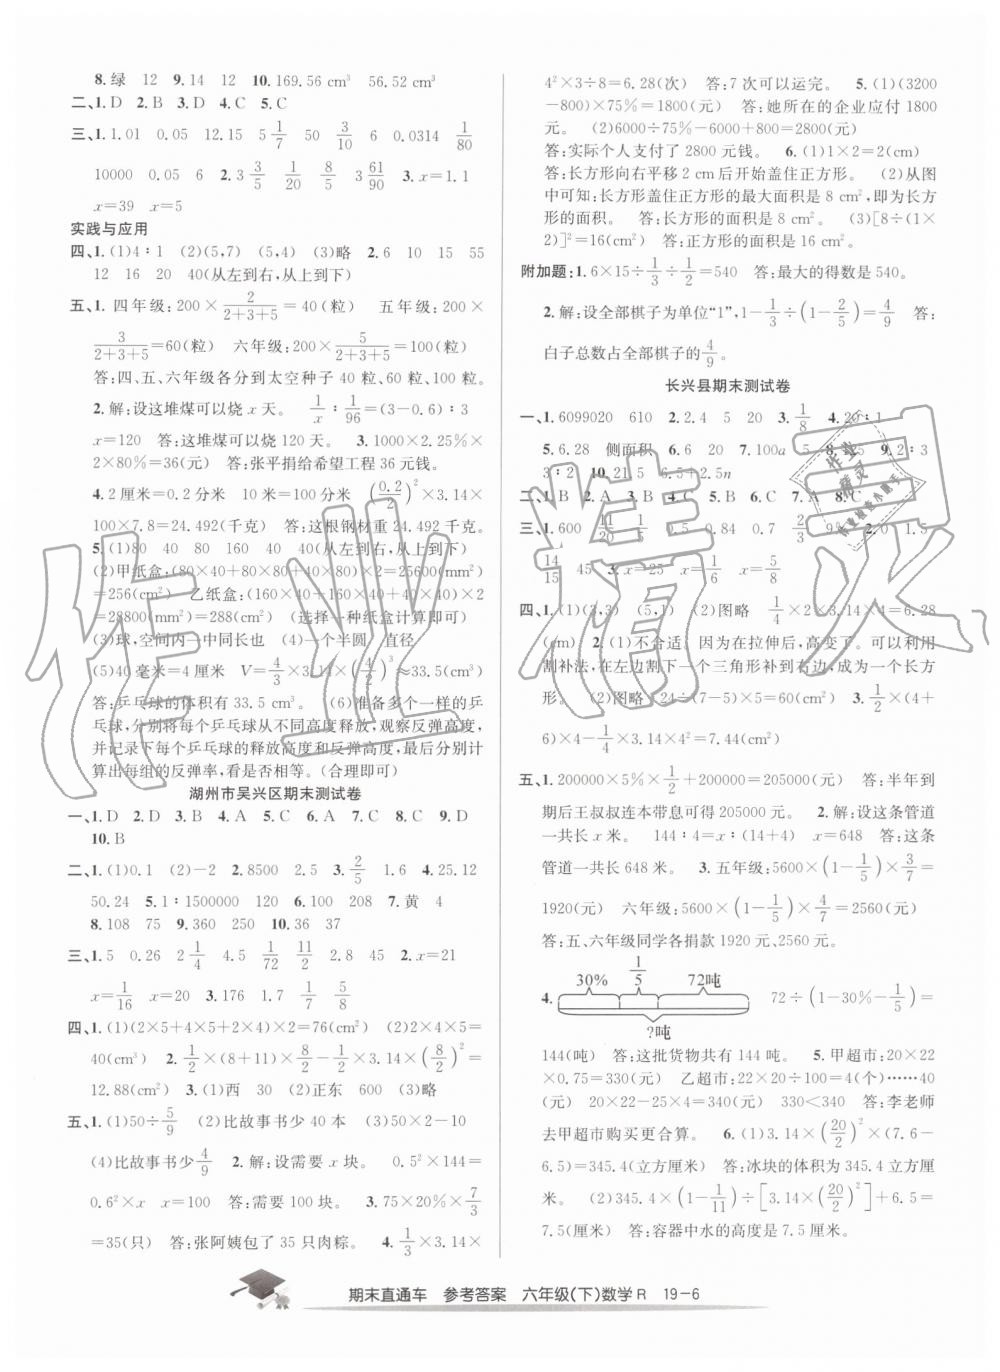 8.绿 12 9.14 12 10.169.56 cm³ 56.52 cm³
二、1.D 2.B 3.D 4.C 5.C
三、1.1.01 0.05 12.15 5 1/7 50 3/10 6 0.0314 1/80
10000 0.05 6 2.3 3/5 1/20 8/5 3 61/90 3.x=1.1
x=39 x=5
实践与应用
四、1.(1)4∶1 (2)(5,7) (5,4) (3)略 2.6 10 15 55
12 16 20 40(从左到右,从上到下)
五、1. 四年级:200×2/(2+3+5)=40(粒) 五年级:200×
3/(2+3+5)=60(粒) 六年级:200×5/(2+3+5)=100(粒)
答:四、五、六年级各分到太空种子 40 粒、60 粒、100 粒。
2.解:设这堆煤可以烧 x 天。 1/x∶1/96=(3-0.6)∶3
x=120 答:这堆煤可以烧 120 天。 3.1000×2.25%×
2×80%=36(元) 答:张平捐给希望工程 36 元钱。
4.2 厘米=0.2 分米 10 米=100 分米 (0.2/2)²×3.14×
100×7.8=24.492(千克) 答:这根钢材重 24.492 千克。
5.(1)80 40 80 160 40 40(从左到右,从上到下)
(2)甲纸盒:(80×40+80×80+40×80)×2=25600(mm²)
=256(cm²) 乙纸盒:(160×40+160×40+40×40)×2=
28800(mm²)=288(cm²) (选择一种纸盒计算即可)
(3)球,空间内一中同长也 (4)一个半圆 直径
(5)40 毫米=4 厘米 V=4/3×3.14×(4/2)³≈33.5(cm³)
答:乒乓球的体积有 33.5 cm³。 (6)准备多个一样的乒
乓球,分别将每个乒乓球从不同高度释放,观察反弹高度,
并记录下每个乒乓球的释放高度和反弹高度,最后分别计
算出每组的反弹率,看是否相等。(合理即可)
湖州市吴兴区期末测试卷
一、1.D 2.D 3.B 4.A 5.C 6.A 7.C 8.C 9.D
10.B
二、1.(1)0.1 (2)-2 2.8500 2.5 3.2/5 1.6 4.25.12
50.24 5.1∶1500000 120 6.100 208 7.黄 4
8.108 75 9.360 250 10.36 37
三、1.5 0.26 2 1/4 4.5 1/72 11/2 2.8 45 2.x=21
x=1/16 x=20 3.176 1.7 1/7 5/8
四、1.(1)(2×5+4×5+2×4)×2=76(cm²) (2)2×4×5=
40(cm³) 2.1/2×(8+11)×8-1/2×3.14×(8/2)²=
12.88(cm²) 3.(1)西 30 (2)正东 600 (3)略
五、1.(1)50÷5/9 (2)比故事书少 40 本 (3)50×2-10
(4)比故事书少4/9 2.解:设需要 x 块。 0.5²×144=
0.6²×x x=100 答:需要 100 块。 3.75×20%×7/3
=35(只) 答:张阿姨包了 35 只肉粽。 4.1/3×3.14×
4²×3÷8=6.28(次) 答:7 次可以运完。 5.(1)(3200
-800)×75%=1800(元) 答:她所在的企业应付 1800
元。 (2)6000÷75%-6000+800=2800(元)
答:实际个人支付了 2800 元钱。 6.(1)1×2=2(cm)
答:长方形向右平移 2 cm 后开始盖住正方形。 (2)从图
中可知:长方形盖住正方形的最大面积是 8 cm²,即为长方
形的面积。 答:长方形的面积是 8 cm²。 (3)[8÷(1×
2)]²=16(cm²) 答:正方形的面积是 16 cm²。
附加题:1.6×15÷1/3÷1/2=540 答:最大的得数是 540。
2.解:设全部棋子为单位“1”,1-1/3÷(1-2/5)=4/9 答:
白子总数占全部棋子的4/9。
长兴县期末测试卷
一、1.6099020 610 2.2.4 5 20 3.1/8 4.20∶1
5.6.28 侧面积 6.6 20 7.100a 5 8. 25 9.2∶3
3∶2 10.21.5 6.5+2.5n
二、1.B 2.A 3.B 4.C 5.C 6.C 7.A 8.C
三、1.600 11/20 1.5 0.5 0.84 0.7 2/3 9 2.0 1.5
14/15 45 3.x=25 x=6 x=5/8
四、1.(1)(2,3) (5,1) (2)图略 1/4×2×3.14×4=6.28
(cm) 2.(1)不合适 因为在拉伸后,高变了。可以利用
割补法,在左边割下一个三角形补到右边,成为一个长方
形。 (2)图略 24÷(7-5)×5=60(cm²) 3.1/2×(4+
6)×4-1/4×3.14×4²=7.44(cm²)
五、1.200000×5%×1/2+200000=205000(元) 答:半年到
期后王叔叔连本带息可得 205000 元。 2.解:设这条管道
一共长 x 米。 144∶4=x∶(14+4) x=648 答:这条
管道一共长 648 米。 3.五年级:5600×(1-1/5)×3/7=
1920(元) 六年级:5600×(1-1/5)×4/7=2560(元)
答:五、六年级同学各捐款 1920 元、2560 元。
30% 1/5 72吨
4. 72÷(1-30%-1/5)=
?吨
144(吨) 答:这批货物共有 144 吨。 5.甲超市:20×22
×0.75=330(元) 乙超市:20×22÷100=4(个)……40
(元) 20×22-25×4=340(元) 330<340 答:李老师
去甲超市购买更合算。 6.(1)3.14×(20/2)²×(7.6-
6.5)=345.4(立方厘米) 答:冰块的体积为 345.4 立方厘
米。 (2)345.4×(1-1/11)÷[3.14×(20/2)²]+6.5=
7.5(厘米) 答:容器中水的高度是 7.5 厘米。
期末直通车 参考答案 六年级(下)数学 R 19-6
作业精灵